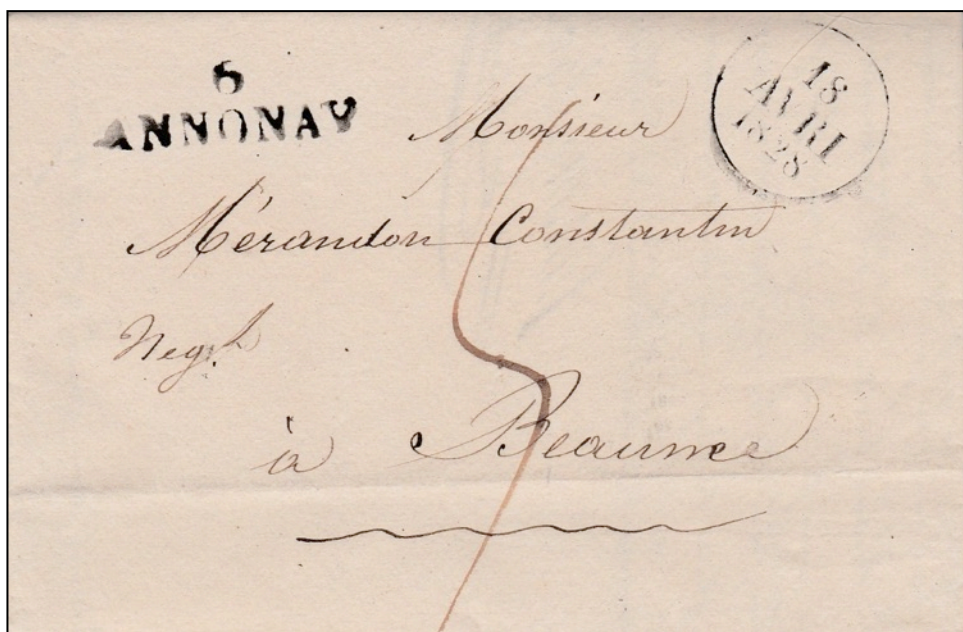 6
ANNONAY
18
AVRI
1828
Monsieur
Mérandon Constantin
Negt
à Beaune
5